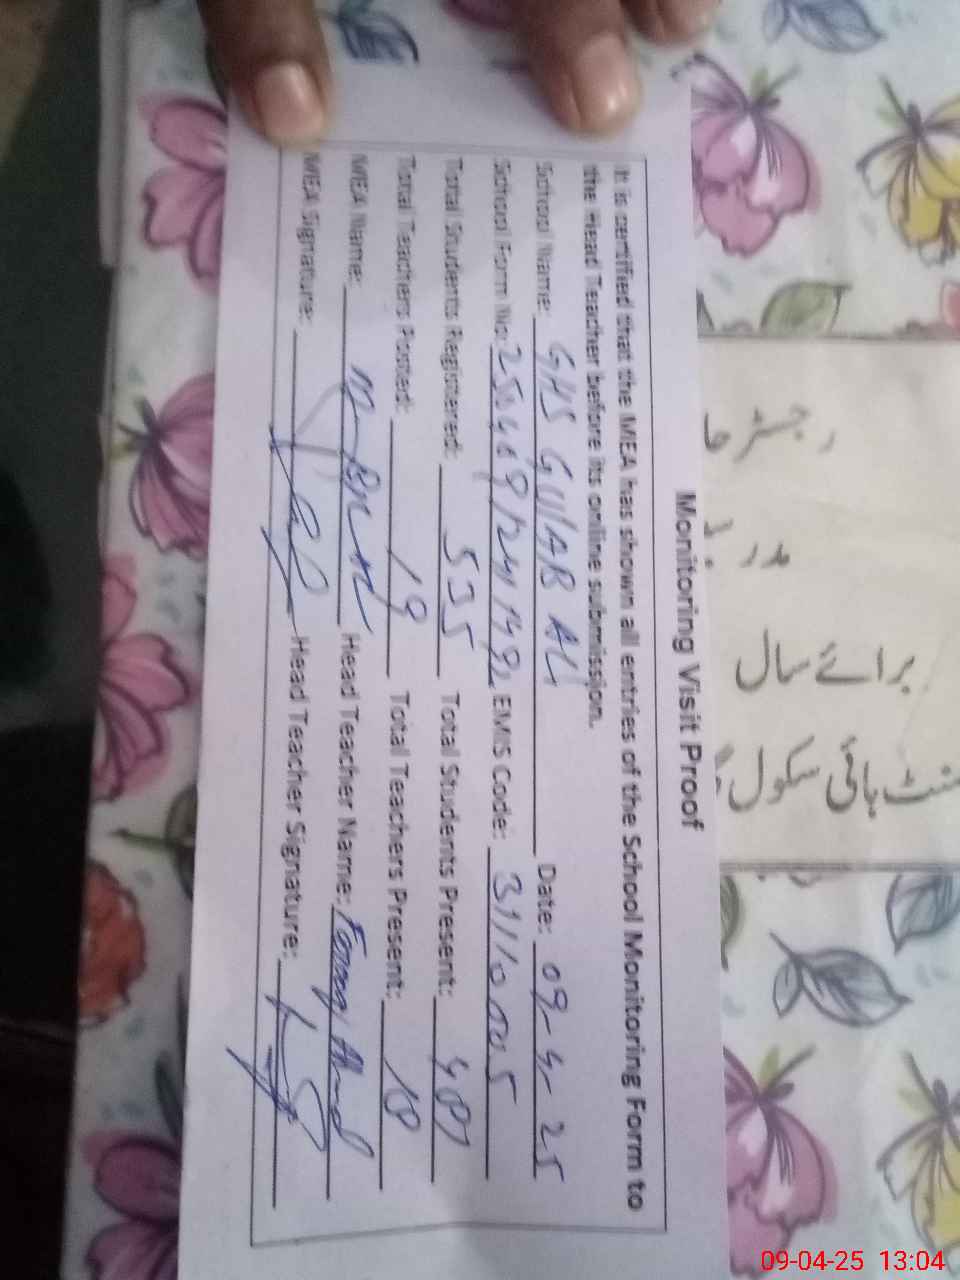 Monitoring Visit Proof
It is certified that the MEA has shown all entries of the School Monitoring Form to
the Head Teacher before its online submission.
School Name: GHS GULAB ALI Date: 09-4-25
School Form No: EMIS Code: 31110005
Total Students Registered: 535 Total Students Present: 407
Total Teachers Posted: 19 Total Teachers Present: 18
MEA Name: Head Teacher Name: Farooq Ahmad
MEA Signature: Head Teacher Signature:
رجسٹر
برائے سال
ہائی سکول
09-04-25 13:04